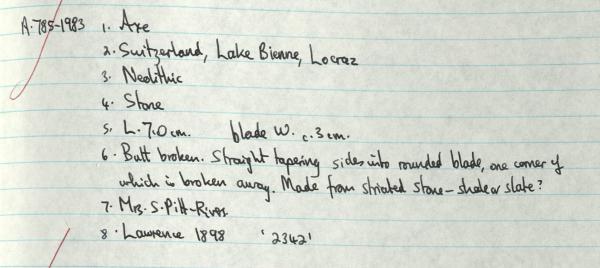 A.785-1983 1. Axe
2. Switzerland, Lake Bienne, Locraz
3. Neolithic
4. Stone
5. L. 7.0 cm. blade W. c. 3 cm.
6. Butt broken. Straight tapering sides into rounded blade, one corner of
which is broken away. Made from striated stone - shale or slate?
7. Mrs. S. Pitt-Rivers
8. Lawrence 1898 '2342'